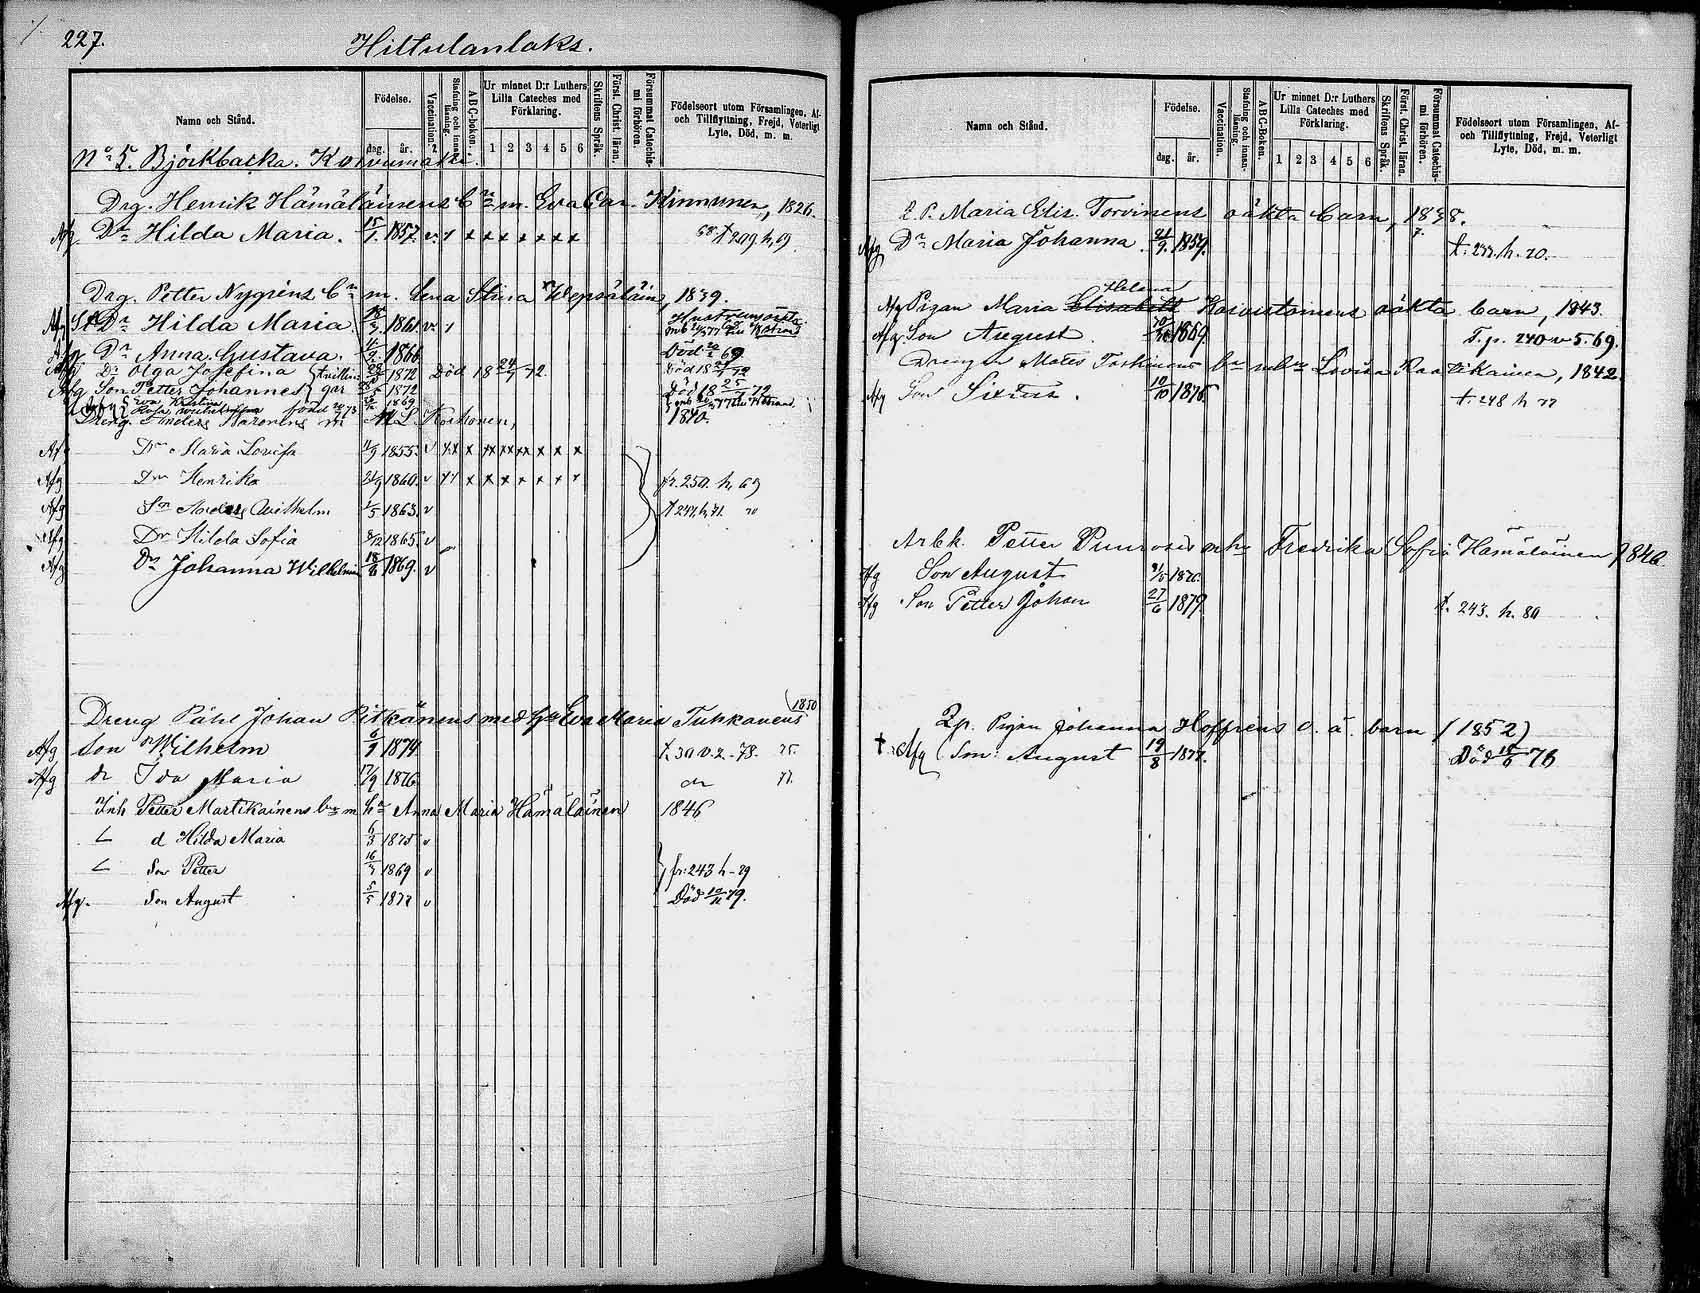 227.
Hiltulanlaks.
Namn och Stånd.
Födelse.
dag. år.
Vaccination.
Stafning och innanläsning.
ABC-boken.
Ur minnet D:r Luthers Lilla Cateches med Förklaring.
1 2 3 4 5 6
Skriftens Språk.
Först. Christ. läran.
Försummat Catechismi förhören.
Födelseort utom Församlingen, Af- och Tillflyttning, Frejd, Veterligt Lyte, Död, m. m.
No 5. Björkbacka. Koivumäki.
Drg. Henrik Hämäläinens Bn m. Eva Car. Kinnunen, 1826.
Afg Dr Hilda Maria. 1857. v x x x x x x x t 209. h, 69
Drg. Petter Nygréns Bn m. Lena Stina Wepsäläin, 1839.
Afg Dr Hilda Maria 1861. v
Afg Dr Anna Gustava. 1866. Död 69
Afg Dr Olga Josefina 1872 Död 18 24/7 72. Död 18 72
Afg Son Petter Johannes 1872 Död 18 25/7 72
Eva Kristina 1869
född
Dreng. Anders m M. L. Korhonen, 1840.
Afg Dr Maria Lovisa 11/9 1855. v x x x x x x x x
Afg Dr Henrika 24/9 1860. v x x x x x x x fr. 250. h, 69
Afg Son Anders Wilhelm 1/5 1863. v t 241. h, 71.
Afg Dr Hilda Sofia 1865. v
Afg Dr Johanna Wilhelmina 18/6 1869. v
Dreng Påhl Johan Pitkänens med Hu Eva Maria Tuhkanens 1850
Afg Son Wilhelm 6/9 1874 t. 30 v. 2. - 78.
Afg dr Ida Maria 17/9 1876 dr
Inh Petter Martikainens bn m hu Anna Maria Hämäläinen 1846
d Hilda Maria 6/3 1875 v
Son Petter 16/7 1869 v fr: 243 h - 79
Afg. Son August 5/5 1877 v Död 10/11 79.
Namn och Stånd.
Födelse.
dag. år.
Vaccination.
Stafning och innanläsning.
ABC-Boken.
Ur minnet D:r Luthers Lilla Cateches med Förklaring.
1 2 3 4 5 6
Skriftens Språk.
Först. Christ. läran.
Försummat Catechismi förhören.
Födelseort utom Församlingen, Af- och Tillflyttning, Frejd, Veterligt Lyte, Död, m. m.
Q. P. Maria Elis. Torvinens oäkta barn, 1838.
Afg Dr Maria Johanna. 21/9 1859. t. 277. h. 70.
Helena
Afg Pigan Maria Elisabeth Koivistoinens oäkta barn, 1843.
Afg Son August. 1869. T. p. 240 v 5. 69.
Drengen Mats Torkinens bn m hu Lovisa Raatikainen, 1842
Afg Son Sixtus. 10/10 1876 t. 248 h 77
Arbk. Petter Purroses m hu Fredrika Sofia Hämäläinen 1846
Afg Son August 9/5 1876
Afg Son Petter Johan 27/6 1879 t. 243. h. 80
Qp. Pigan Johanna Hoffrens o. ä. barn (1852)
† Afg Son August 19/8 1877. Död 78